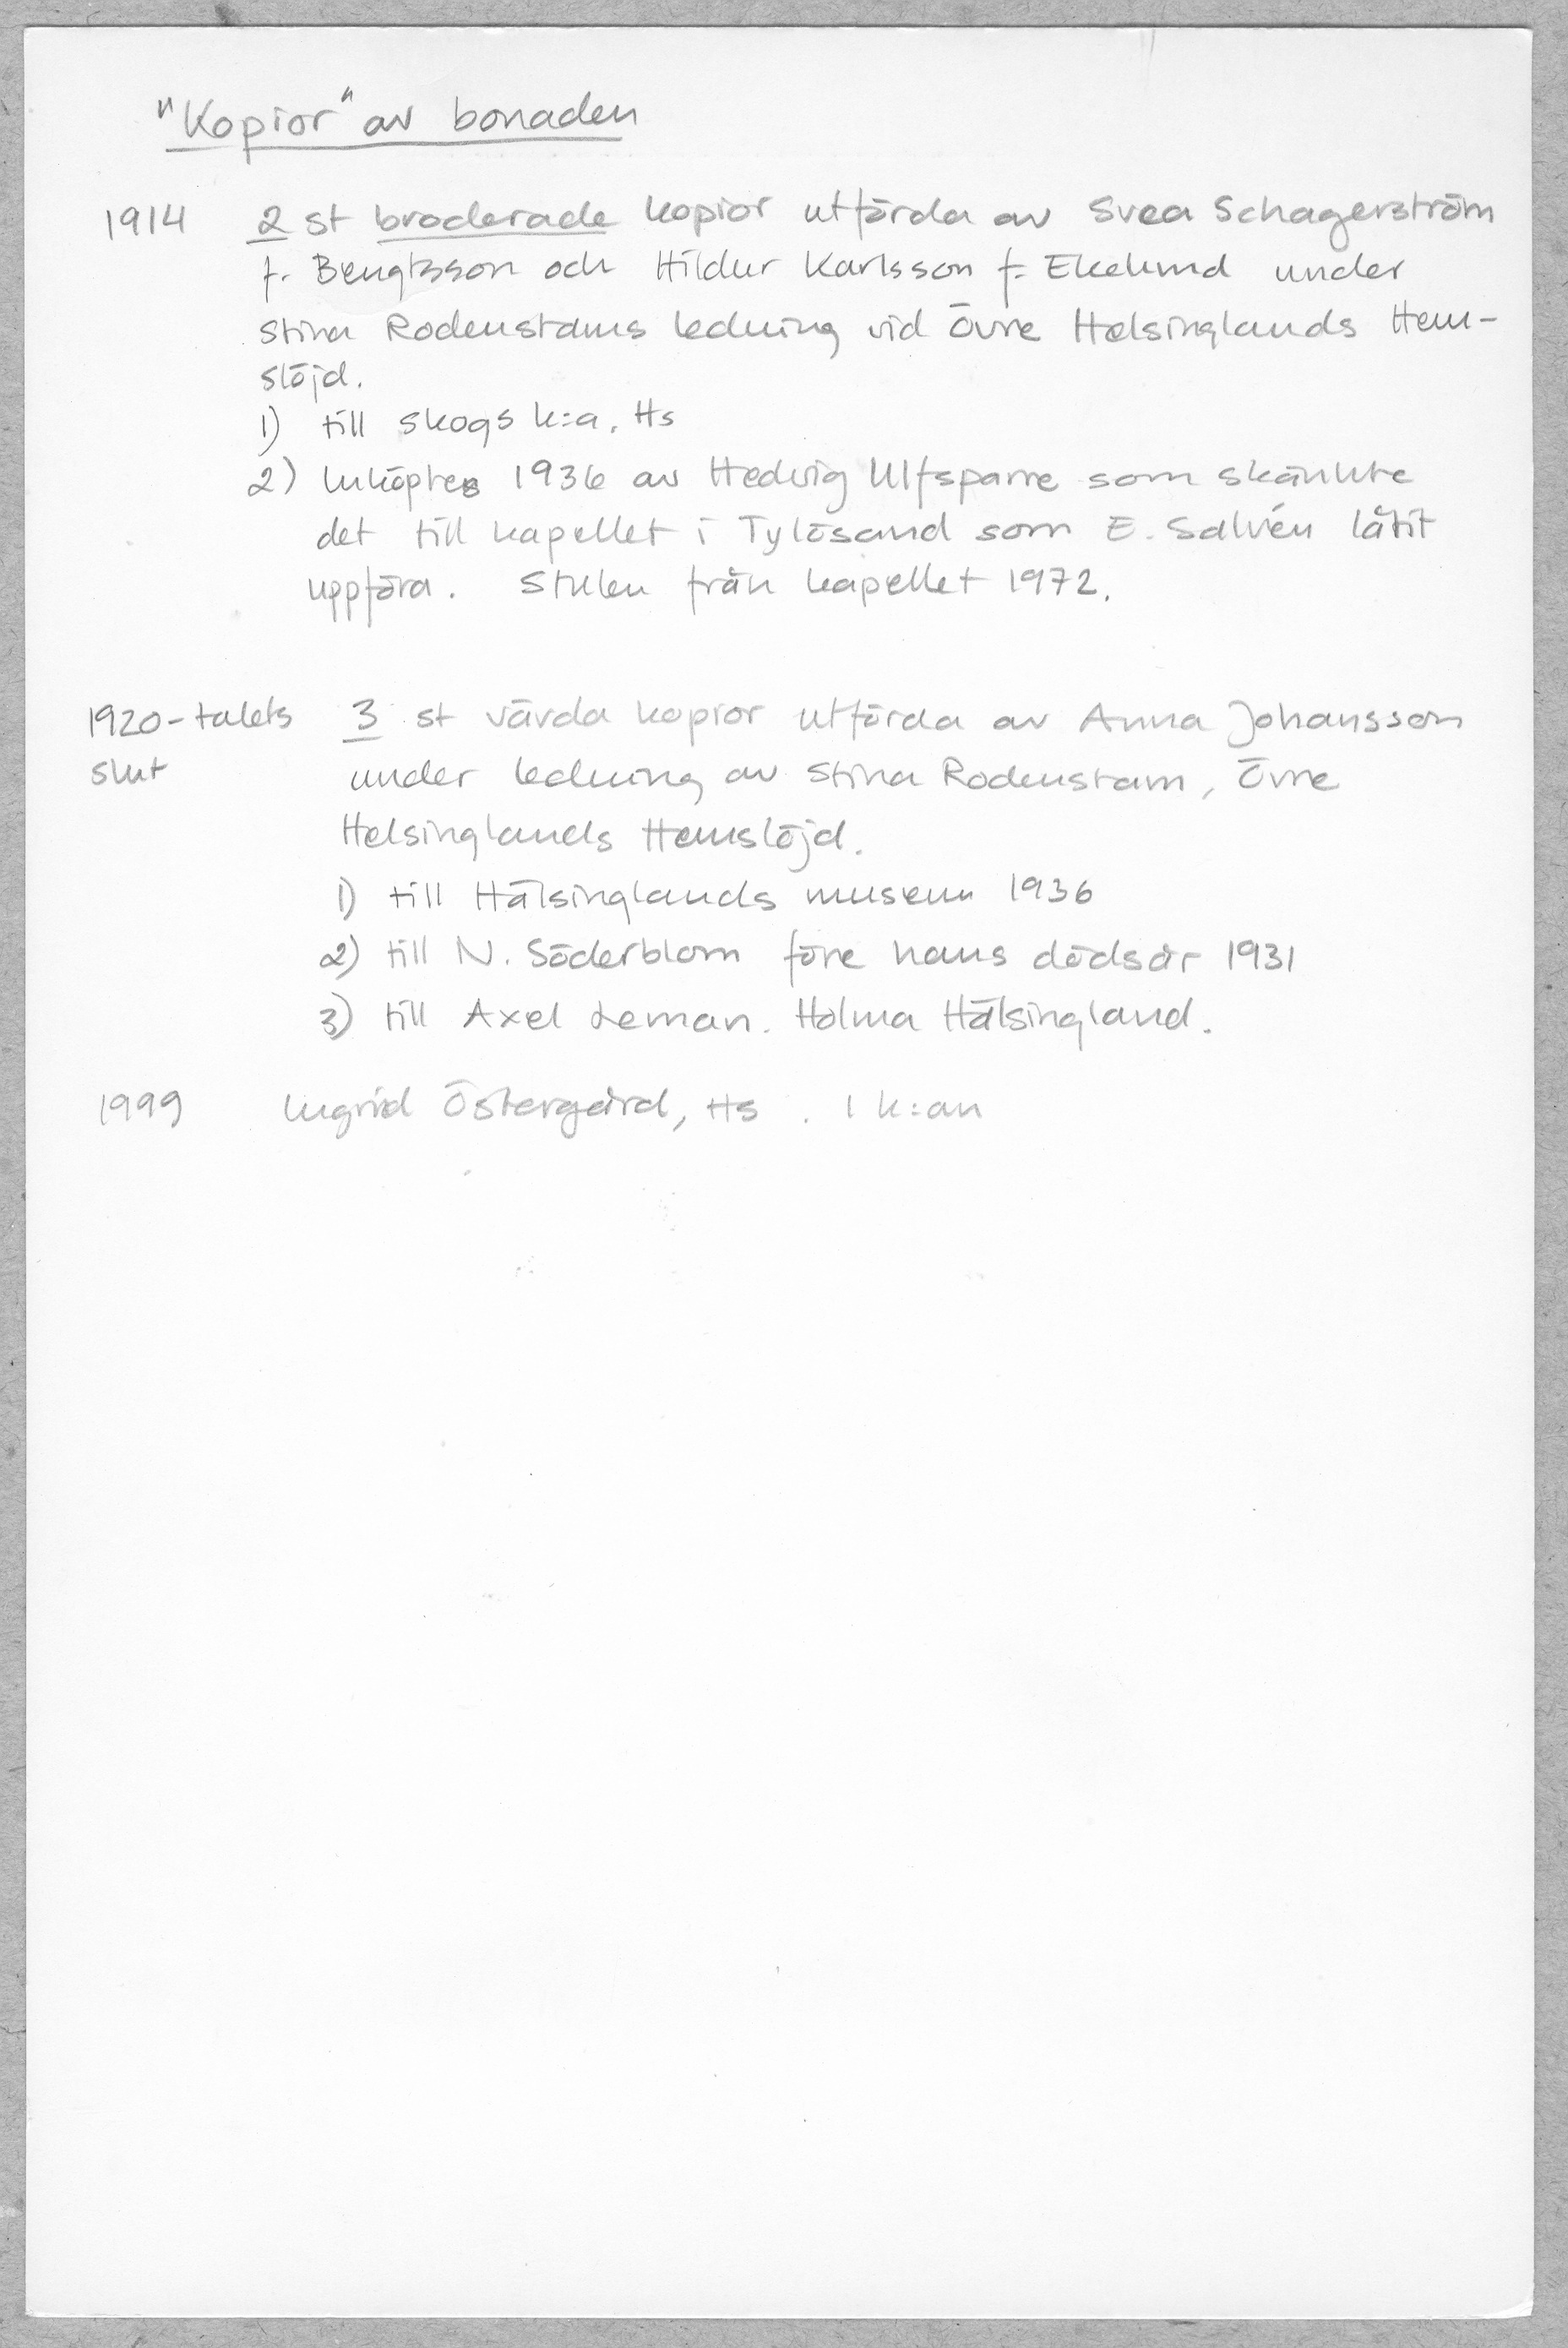 "Kopior" av bonaden
1914 2 st broderade kopior utförda av Svea Schagerström
f. Bengtsson och Hildur Karlsson f. Ekelund under
Stina Rodenstams ledning vid Övre Helsinglands Hem-
slöjd.
1) till Skogs k:a, Hs
2) Inköptes 1936 av Hedvig Ulfsparre som skänkte
det till kapellet i Tylösand som E. Salvén låtit
uppföra. Stulen från kapellet 1972.
1920-talets 3 st vävda kopior utförda av Anna Johansson
slut under ledning av Stina Rodenstam, Övre
Helsinglands Hemslöjd.
1) till Hälsinglands museum 1936
2) till N. Söderblom före hans dödsår 1931
3) till Axel Leman. Holma Hälsingland.
1999 Ingrid Östergård, Hs. I k:an